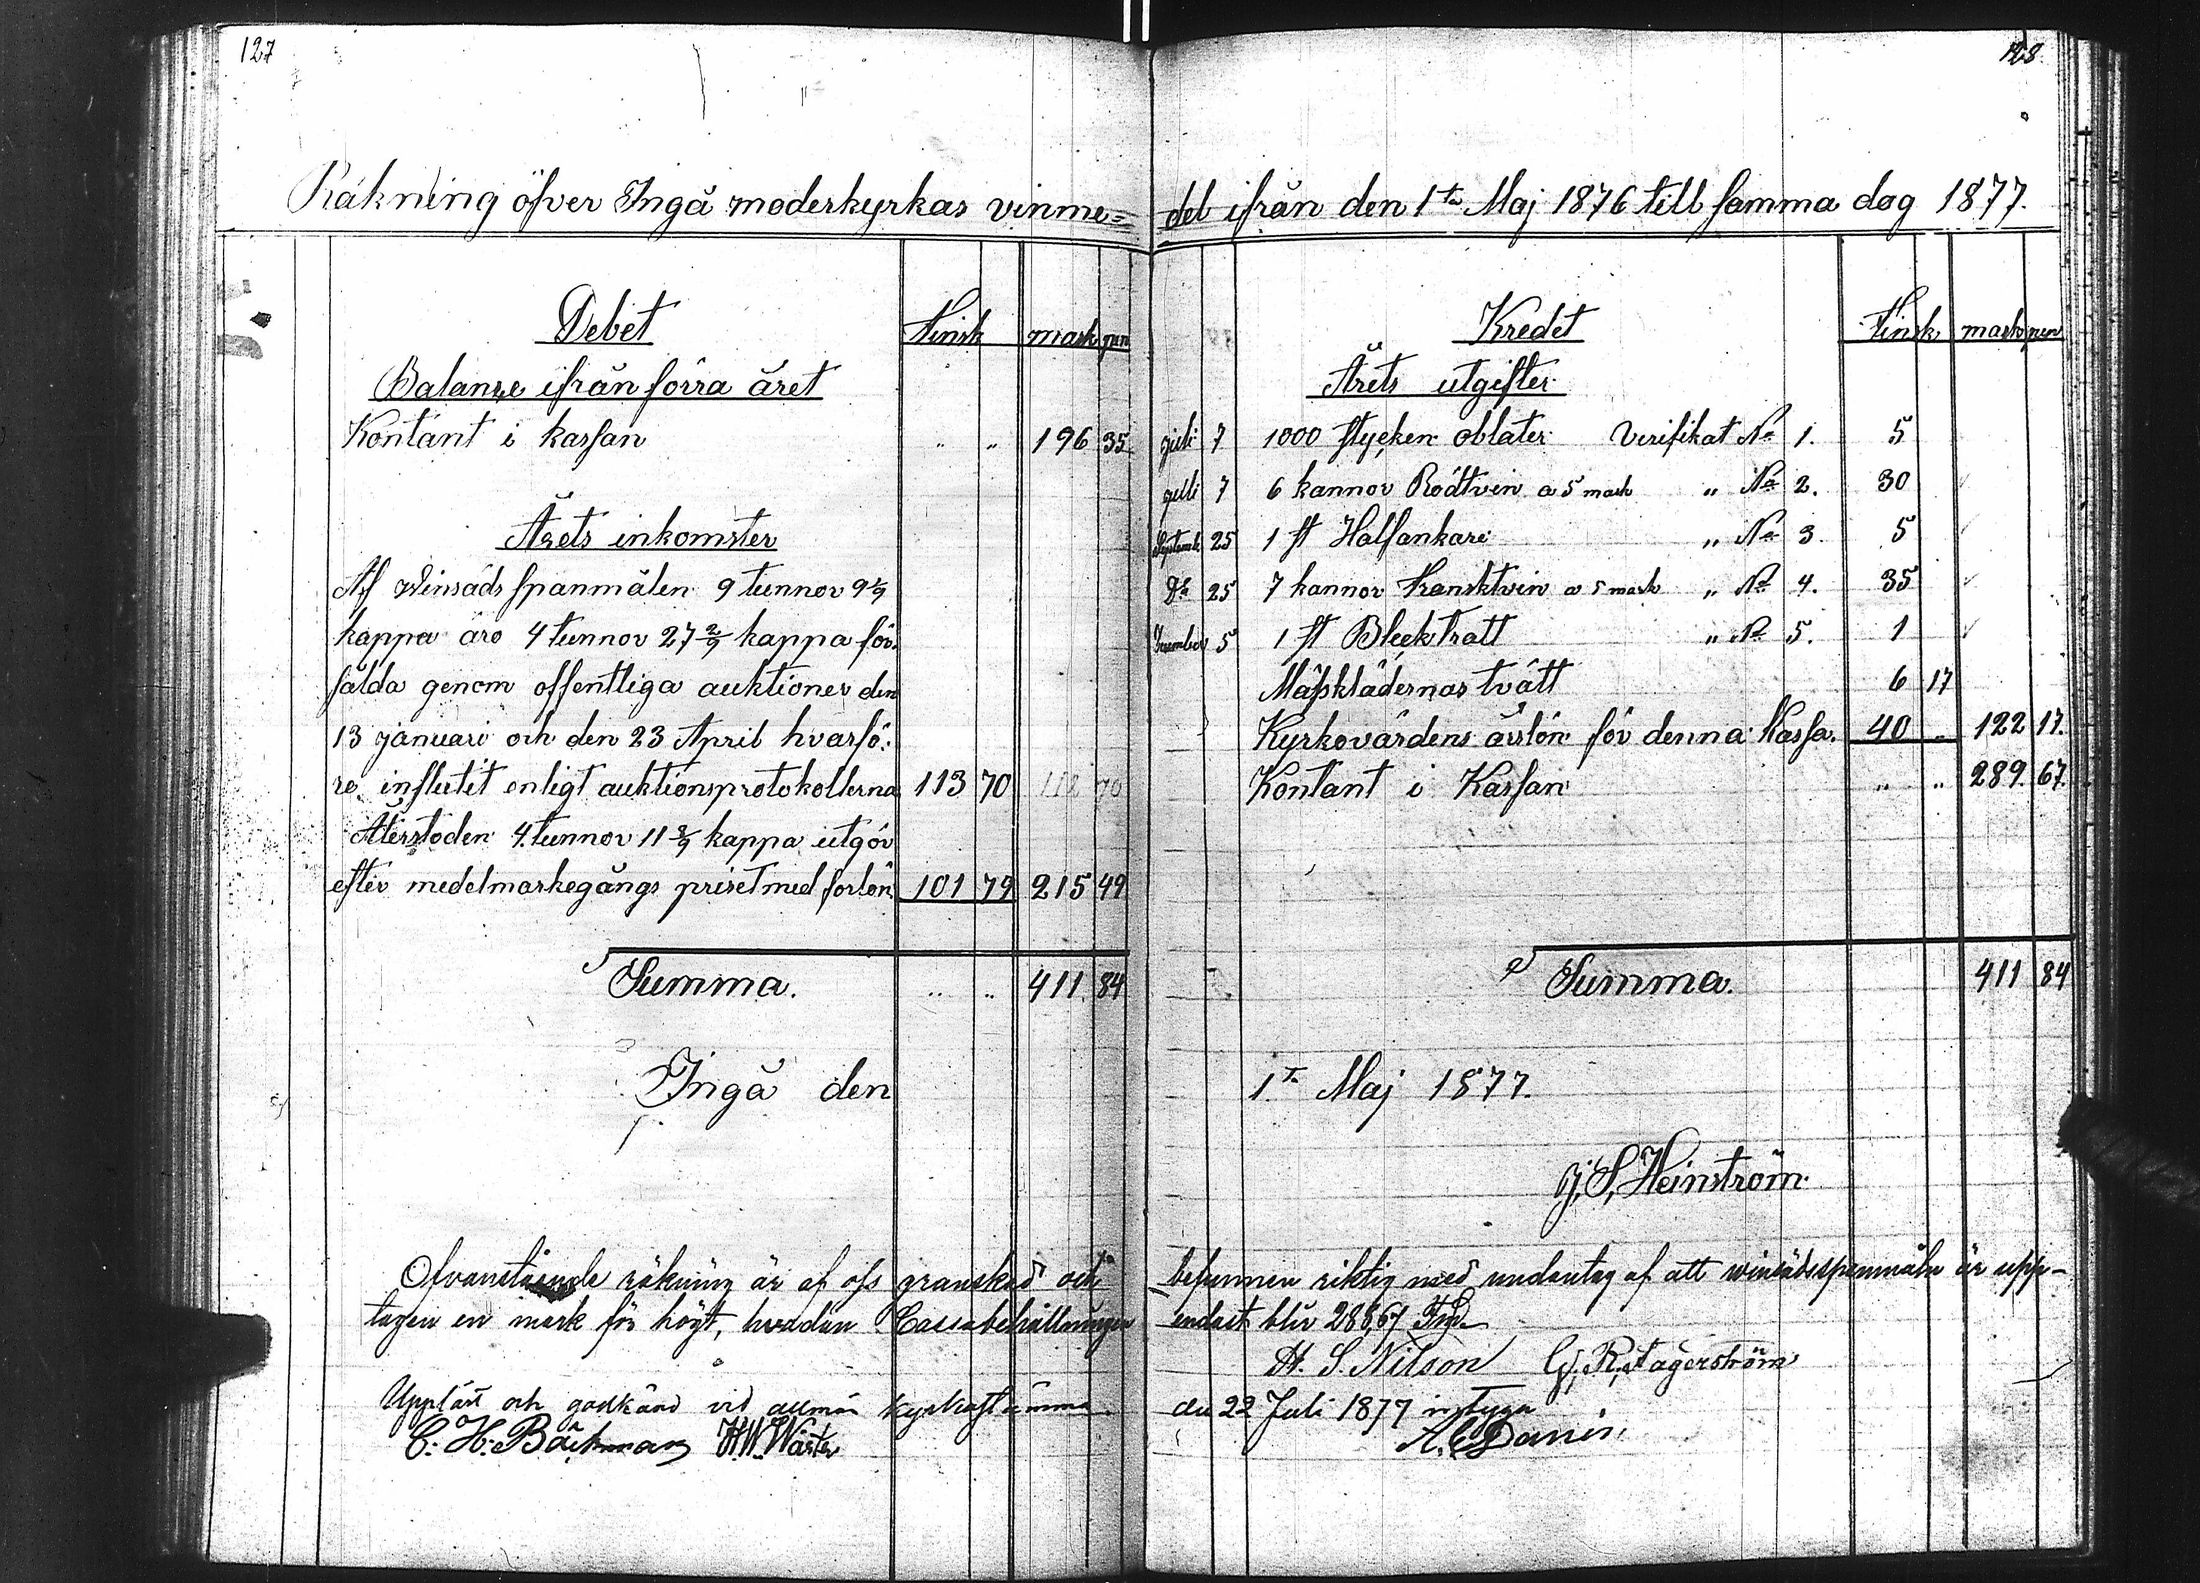 127
128
Räkning öfver Ingå moderkyrkas vinme=
del ifrån den 1ta Maj 1876 till samma dag 1877.
Debet Finsk mark pen
Balanse ifrån förra året
Kontant i kassan " " 196 35
Årets inkomster
Af Winsäds spanmålen 9 tunnor 9 1/9
kappa äro 4 tunnor 27 2/9 kappa för-
sålda genom offentliga auktioner den
13 januari och den 23 April hvarfö-
re influtit enligt auktionsprotokollerna 113 70 112 70
Återstoden 4 tunnor 11 8/9 kappa utgör
efter medelmarkegångs priset med forlön 101 79 215 49
Summa. " " 411. 84
Ingå den
Kredet Finsk mark pen
Årets utgifter
juli 7 1000 stycken oblater Verifikat No 1. 5
juli 7 6 kannor Rödtvin a 5 mark " No 2. 30
Septemb 25 1 st Halfankare " No 3 5
Do 25 7 kannor Fransktvin a 5 mark " No 4. 35
December 5 1 st Blecktratt " No 5. 1
Mässklädernas tvätt 6 17
Kyrkovärdens årslön för denna Kassa. 40 " 122 17.
Kontant i Kassan " " 289. 67.
Summa. 411 84
1ta Maj 1877.
J. S. Heinström
Ofvanstående räkning är af oss granskad och
befunnen riktig med undantag af att winsädsspanmåln är upp-
tagen en mark för högt, hvadan Cassabehållningen
endast blir 288,67 Fmk
H. S. Nilson G. R. Fagerström
Uppläst och godkänd vid allmän kyrkostämma
den 22 Juli 1877 intyga
C. H. Bäckman